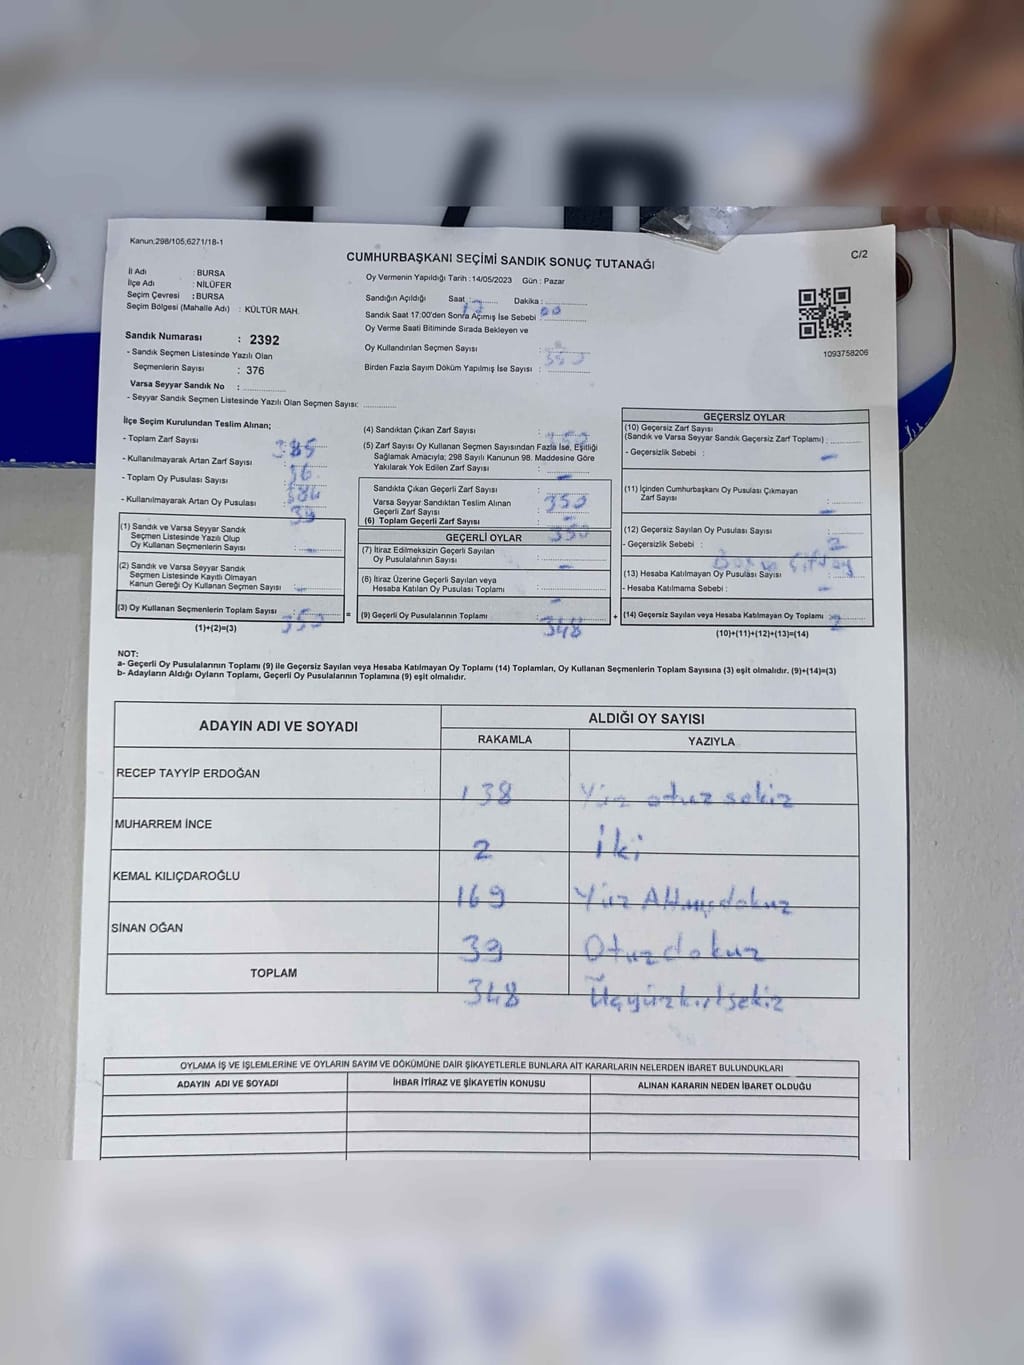 1/D
Kanun;298/105,6271/18-1
C/2
CUMHURBAŞKANI SEÇİMİ SANDIK SONUÇ TUTANAĞI
İl Adı : BURSA
İlçe Adı : NİLÜFER
Seçim Çevresi : BURSA
Seçim Bölgesi (Mahalle Adı) : KÜLTÜR MAH.
Oy Vermenin Yapıldığı Tarih : 14/05/2023 Gün : Pazar
Sandığın Açıldığı Saat : 17 Dakika : 00
Sandık Saat 17:00'den Sonra Açmış İse Sebebi :
Oy Verme Saati Bitiminde Sırada Bekleyen ve
Oy Kullandırılan Seçmen Sayısı :
Birden Fazla Sayım Döküm Yapılmış İse Sayısı : 350
1093758206
Sandık Numarası : 2392
- Sandık Seçmen Listesinde Yazılı Olan
Seçmenlerin Sayısı : 376
Varsa Seyyar Sandık No :
- Seyyar Sandık Seçmen Listesinde Yazılı Olan Seçmen Sayısı:
İlçe Seçim Kurulundan Teslim Alınan;
- Toplam Zarf Sayısı : 385
- Kullanılmayarak Artan Zarf Sayısı
- Toplam Oy Pusulası Sayısı
- Kullanılmayarak Artan Oy Pusulası
(1) Sandık ve Varsa Seyyar Sandık
Seçmen Listesinde Yazılı Olup
Oy Kullanan Seçmenlerin Sayısı : -
(2) Sandık ve Varsa Seyyar Sandık
Seçmen Listesinde Kayıtlı Olmayan
Kanun Gereği Oy Kullanan Seçmen Sayısı : -
(3) Oy Kullanan Seçmenlerin Toplam Sayısı : 350
(1)+(2)=(3)
(4) Sandıktan Çıkan Zarf Sayısı : 350
(5) Zarf Sayısı Oy Kullanan Seçmen Sayısından Fazla İse, Eşitliği
Sağlamak Amacıyla; 298 Sayılı Kanunun 98. Maddesine Göre
Yakılarak Yok Edilen Zarf Sayısı : -
Sandıkta Çıkan Geçerli Zarf Sayısı : 350
Varsa Seyyar Sandıktan Teslim Alınan
Geçerli Zarf Sayısı : -
(6) Toplam Geçerli Zarf Sayısı : 350
GEÇERLİ OYLAR
(7) İtiraz Edilmeksizin Geçerli Sayılan
Oy Pusulalarının Sayısı : -
(8) İtiraz Üzerine Geçerli Sayılan veya
Hesaba Katılan Oy Pusulası Toplamı : -
= (9) Geçerli Oy Pusulalarının Toplamı : 348
GEÇERSİZ OYLAR
(10) Geçersiz Zarf Sayısı
(Sandık ve Varsa Seyyar Sandık Geçersiz Zarf Toplamı) :
- Geçersizlik Sebebi : -
(11) İçinden Cumhurbaşkanı Oy Pusulası Çıkmayan
Zarf Sayısı : -
(12) Geçersiz Sayılan Oy Pusulası Sayısı : 2
- Geçersizlik Sebebi :
(13) Hesaba Katılmayan Oy Pusulası Sayısı :
- Hesaba Katılmama Sebebi : -
+ (14) Geçersiz Sayılan veya Hesaba Katılmayan Oy Toplamı : 2
(10)+(11)+(12)+(13)=(14)
NOT:
a- Geçerli Oy Pusulalarının Toplamı (9) ile Geçersiz Sayılan veya Hesaba Katılmayan Oy Toplamı (14) Toplamları, Oy Kullanan Seçmenlerin Toplam Sayısına (3) eşit olmalıdır. (9)+(14)=(3)
b- Adayların Aldığı Oyların Toplamı, Geçerli Oy Pusulalarının Toplamına (9) eşit olmalıdır.
ADAYIN ADI VE SOYADI
ALDIĞI OY SAYISI
RAKAMLA YAZIYLA
RECEP TAYYİP ERDOĞAN 138 Yüz otuz sekiz
MUHARREM İNCE 2 İki
KEMAL KILIÇDAROĞLU 169 Yüz Altmışdokuz
SİNAN OĞAN 39 Otuzdokuz
TOPLAM 348 Üçyüzkırksekiz
OYLAMA İŞ VE İŞLEMLERİNE VE OYLARIN SAYIM VE DÖKÜMÜNE DAİR ŞİKAYETLERLE BUNLARA AİT KARARLARIN NELERDEN İBARET BULUNDUKLARI
ADAYIN ADI VE SOYADI İHBAR İTİRAZ VE ŞİKAYETİN KONUSU ALINAN KARARIN NEDEN İBARET OLDUĞU